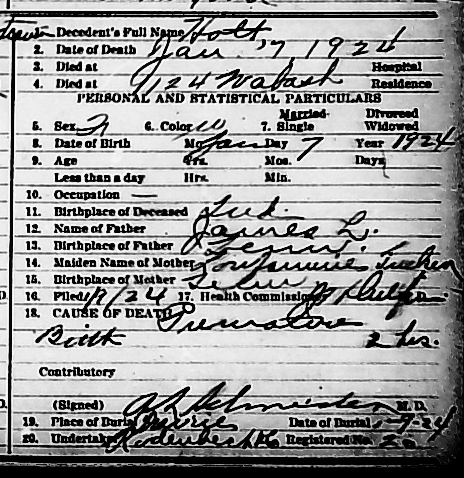 1. Decedent's Full Name Holt
2. Date of Death Jan 7 1924
3. Died at Hospital
4. Died at 1124 Wabash Residence
PERSONAL AND STATISTICAL PARTICULARS
5. Sex 6. Color W 7. Married Single Divorced Widowed
8. Date of Birth Mo. Jan Day 7 Year 1924
9. Age Yrs. Mos. Days
Less than a day Hrs. Min.
10. Occupation —
11. Birthplace of Deceased Ind.
12. Name of Father James L.
13. Birthplace of Father Tenn.
14. Maiden Name of Mother Tucker
15. Birthplace of Mother Tenn
16. Filed 1/9/24 17. Health Commissioner
18. CAUSE OF DEATH Premature
Birth 2 hrs.
Contributory
(Signed) M. D.
19. Place of Burial Date of Burial 1-9-24
20. Undertaker Registered No. 20